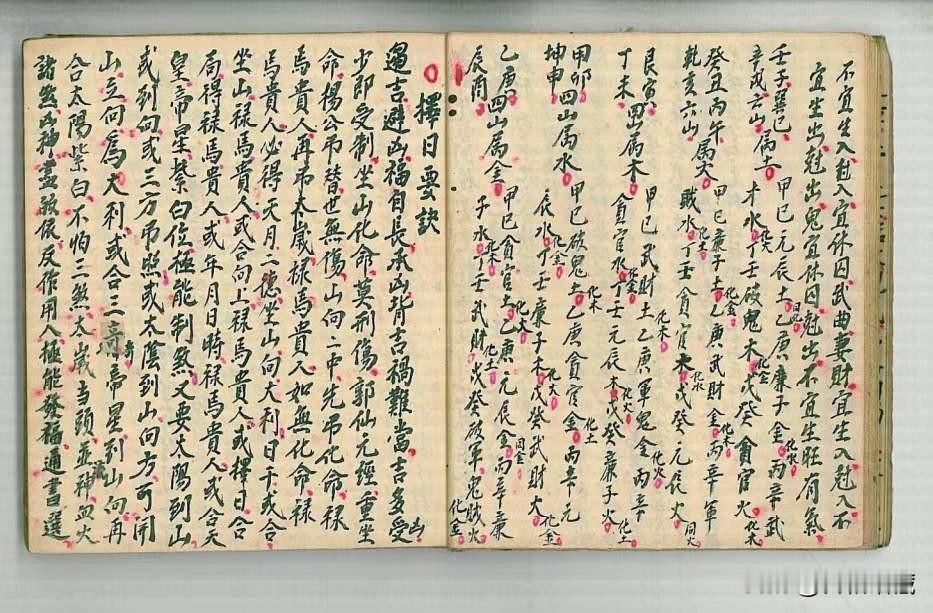 不宜生入尅入宜休囚武曲妻財宜生入尅入不
宜生出尅出鬼宜休囚尅出不宜生旺有氣
壬子巽巳
辛戌六山属火 甲巳元辰土乙庚廉子金丙辛武
才水丁壬破鬼木戊癸貪官火
癸丑丙午
乾亥六山属火 甲巳廉子土乙庚武財金丙辛軍
賊水丁壬貪官木戊癸元辰火
艮寅
丁未四山属木 甲巳武財土乙庚軍鬼金丙辛
貪官水丁壬元辰木戊癸廉子火
甲卯四山属水
坤申 甲巳破鬼土乙庚貪官金丙辛元
辰水丁壬廉子木戊癸武財火
乙庚四山属金
辰商 甲巳貪官土乙庚元辰金丙辛廉
子水丁壬武財戊癸破軍鬼賊火
擇日要訣
過吉避凶福自長承凶背吉禍難當吉多受
少即受制坐山化命莫刑傷郭仙元經重坐
命楊公吊替世無傷山向二中先吊化命禄
馬貴人再吊太歲禄馬貴人如無化命禄
馬貴人必得天月二德坐山向大利日干或合
坐山禄馬貴人或合向上禄馬貴人或擇日合
局得禄馬貴人或年月日時禄馬貴人或合天
皇帝星紫白位極能制煞又要太陽到山
或到向或三方吊照或太陰到山向方可開
山立向為大利或合三奇帝星到山向再
合太陽紫白不怕三煞太歲当頭並神血火
諸煞凶神盡敢伏反作用人極能發福通書選